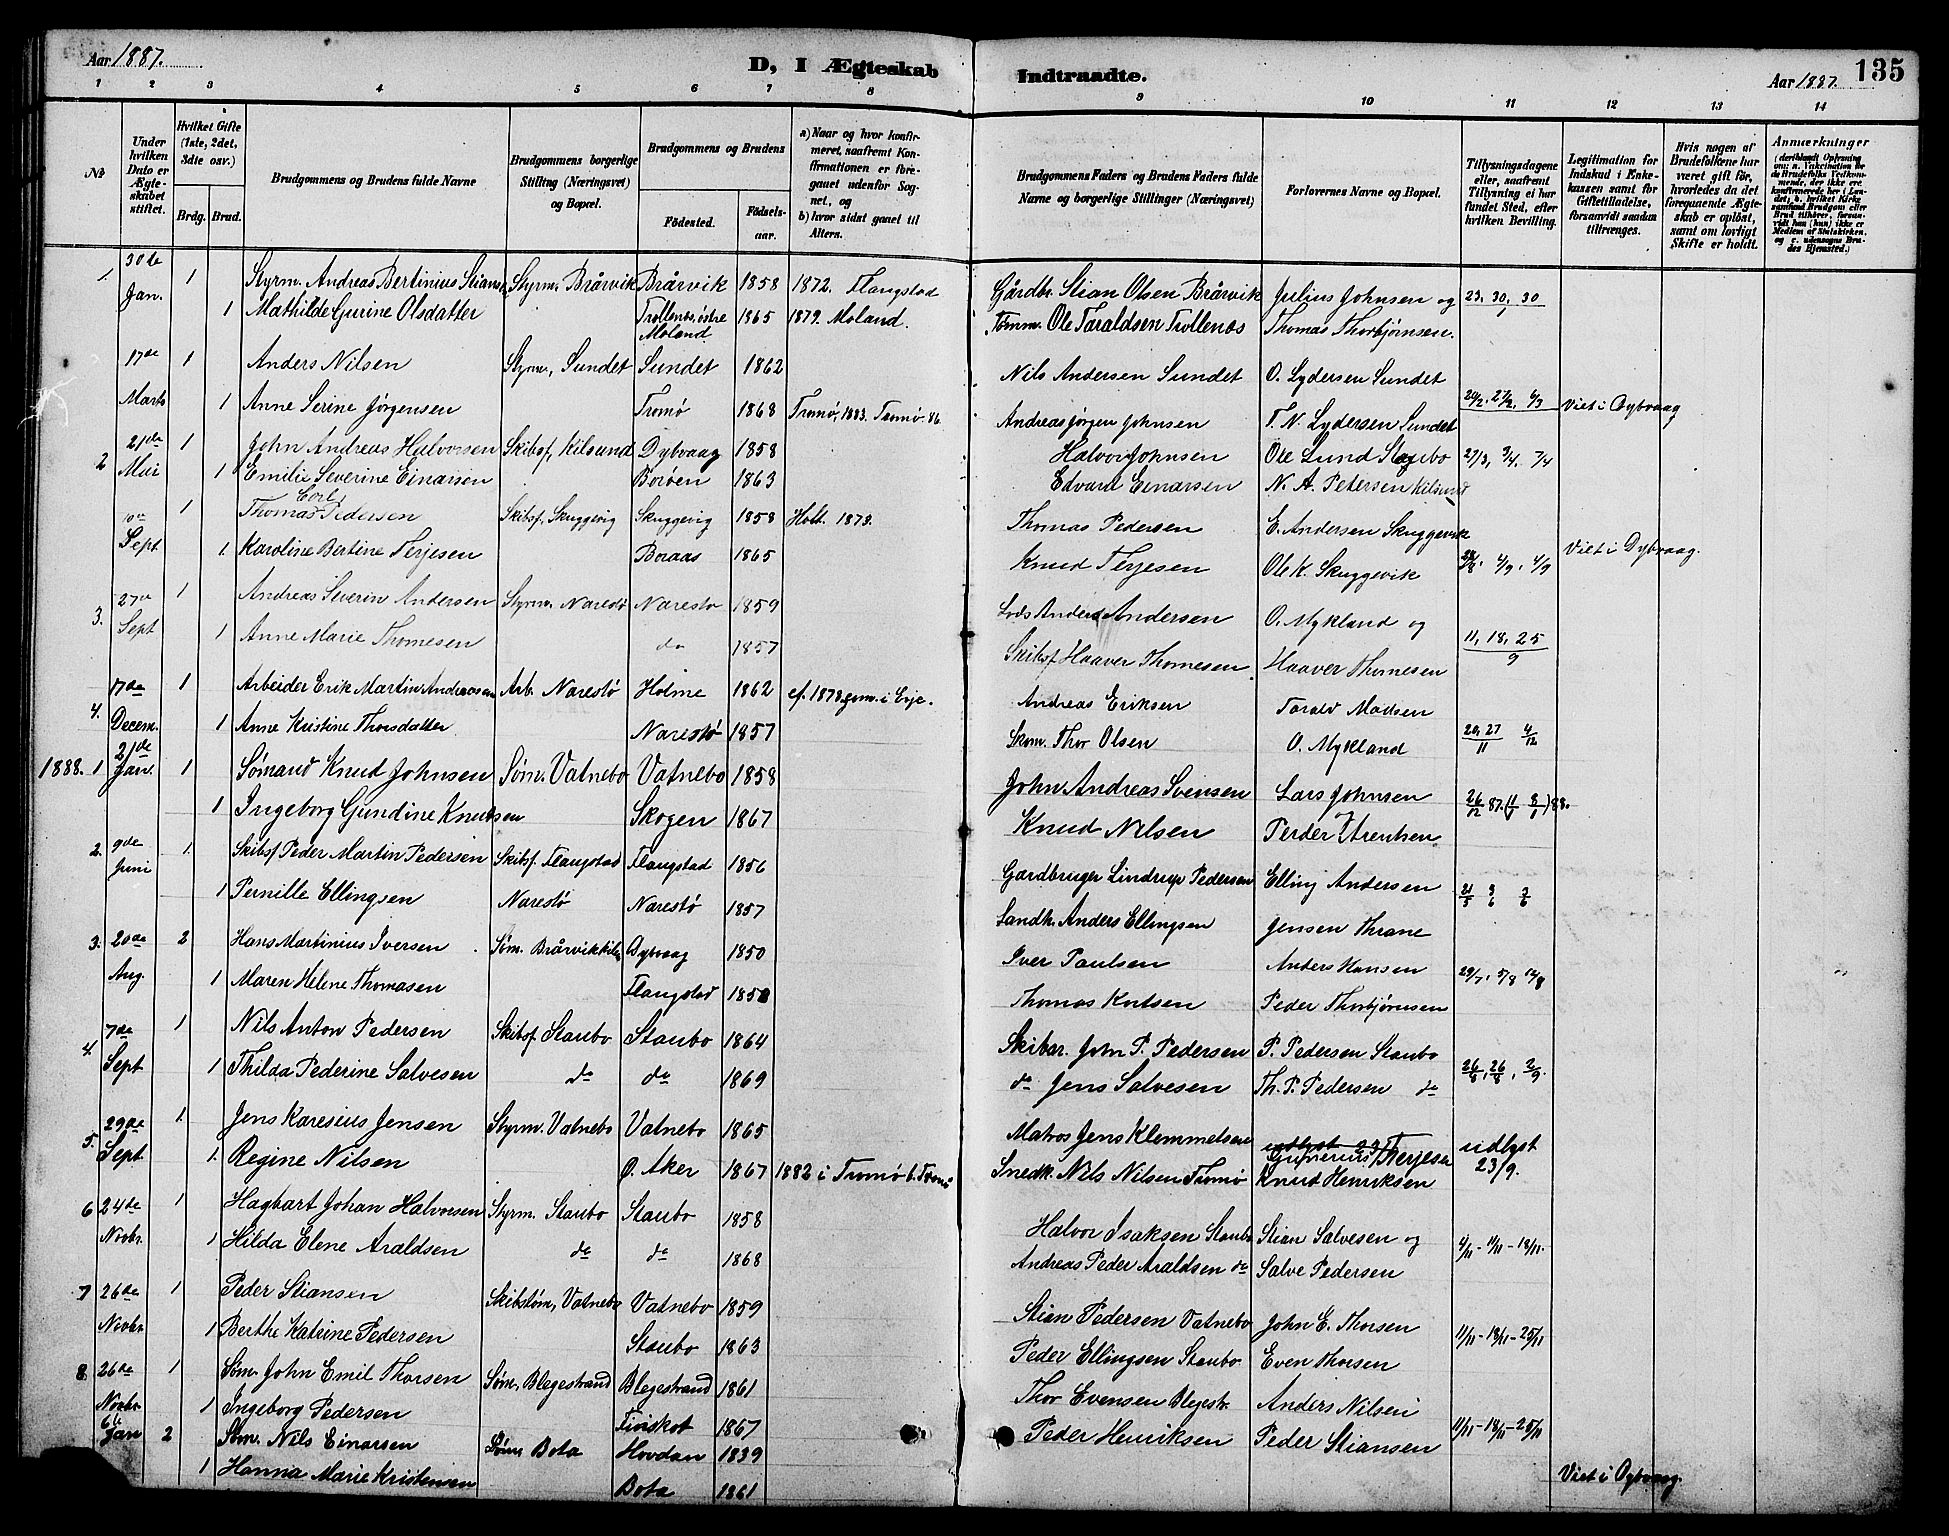 Aar 1887.
D, I Ægteskab
Indtraadte.
Aar 1887.
135
1 2 3 4 5 6 7 8 9 10 11 12 13 14
No
Under hvilken Dato er Ægteskabet stiftet.
Hvilket Gifte (1ste, 2det, 3die osv.)
Brdg. Brud.
Brudgommens og Brudens fulde Navne
Brudgommens borgerlige Stilling (Næringsvei) og Bopæl.
Brudgommens og Brudens
Födested. Födselsaar.
a) Naar og hvor konfirmeret, saafremt Konfirmationen er foregaaet udenfor Sognet, og
b) hvor sidst gaaet til Alters.
Brudgommens Faders og Brudens Faders fulde Navne og borgerlige Stillinger (Næringsvei)
Forlovernes Navne og Bopæl.
Tillysningsdagene eller, saafremt Tillysning ei har fundet Sted, efter hvilken Bevilling.
Legitimation for Indskud i Ænkekassen samt for Giftetilladelse, forsaavidt saadan tiltrænges.
Hvis nogen af Brudefolkene har været gift för, hvorledes da det foregaaende Ægteskab er oplöst, samt om lovligt Skifte er holdt.
Anmærkninger
1. 30te Jan. 1 Styrm. Andreas Bertinius Stiansen Styrm. Brårvik Brårvik 1858 1872. Flangstad Gårdbr. Stian Olsen Brårvik Julius Johnsen og 23, 30, 30/1
1 Mathilde Gurine Olsdatter Trollenes, østre Moland 1865 1879. Moland. Tømm. Ole Taraldsen Trollenæs Thomas Thorbjørnsen.
17de Marts 1 Anders Nilsen Styrm, Sundet Sundet 1862 Nils Andersen Sundet O. Lydersen Sundet 20/2, 27/2, 6/3 Viet i Dybvaag
1 Anne Serine Jørgensen Tromø 1868 Tromø, 1883. Tromø 86 Andreas Jørgen Johnsen T. N. Lydersen Sundet
2 21de Mai 1 John Andreas Halvorsen Skibsf, Kilsund Dybvaag 1858 Halvor Johnsen Ole Lund Staubo 27/3, 3/4, 7/4
1 Emilie Severine Einarsen Boröen 1863 Edvard Einarsen N. A. Petersen Kilsund
10de Sept 1 Thomas Pedersen Skibsf. Skuggevig Skuggevig 1858 Holt. 1873. Thomas Pedersen E. Andersen Skuggevik
1 Karoline Bertine Terjesen Boraas 1865 Knud Terjesen Ole K. Skuggevik 28/8, 4/9, 4/9 Viet i Dybvaag.
3. 27de Sept 1 Andreas Severin Andersen Styrm. Narestø Narestø 1859 Lods Anders Andersen O. Mykland og 11, 18, 25/9
1 Anne Marie Thomesen do 1857 Skibsf Haaver Thomesen Haaver Thomesen
4. 17de Decem. 1 Arbeider Erik Martin Andreassen Arb. Narestø Holme 1862 cf. 1878 gom. i Evje. Andreas Eriksen Tarald Madsen
1 Anne Kristine Thorsdatter Narestø 1857 Skom. Thor Olsen O. Mykland 20, 27/11 4/12
1888. 1 21de Jan. 1 Sømand Knud Johnsen Søm. Vatnebo Vatnebo 1858 John Andreas Svensen Lars Johnsen og 26/12 87. (1/1 8/1) 88.
1 Ingeborg Gundine Knudsen Skogen 1867 Knud Nilsen Perder Arentsen
2. 9de Juni 1. Skibsf Peder Martin Pedersen Skibsf. Flangstad Flangstad 1856 Gardbruger Lindrup Pedersen Elling Andersen
1 Pernille Ellingsen Narestø Narestø 1857 Landh. Anders Ellingsen Jensen Thrane
3. 20de Aug. 2 Hans Martinius Iversen Søm. Brårvikkilen Dybvaag 1850 Iver Paulsen Anders Hansen 29/7, 5/8 12/8
1 Maren Helene Thomasen Flangstad Thomas Knutsen Peder Thorbjørnsen
4. 7de Sept 1 Nils Anton Pedersen Skibsf Staubo Staubo 1864 Skibsr. John P. Pedersen P. Pedersen Staubo
1 Thilda Pederine Salvesen do do 1869 do Jens Salvesen Th. P. Pedersen do 26/8, 2/9
5. 29de Sept 1. Jens Karesius Jensen Styrm. Vatnebo Vatnebo 1865 Matros Jens Klemmetsen Gunerius Terjesen udlyst 23/9.
1. Regine Nilsen Ø. Aker 1867 1882 i Tromø b. Tromø Snedk. Nils Nilsen Tromø Knud Henriksen
6 24de Novbr. 1 Hagbart Johan Halvorsen Styrm. Staubo Staubo 1858 Halvor Isaksen Staubo Stian Salvesen og 4/11 - 11/11 - 18/11.
1 Hilda Elene Araldsen do do 1868 Andreas Peder Araldsen do Salve Pedersen
7 26de Novbr 1 Peder Stiansen Skibstøm, Vatnebo Vatnebo 1859 Stian Pedersen Vatnebo John E. Thorsen 11/11 - 18/11 - 25/11
1 Berthe Katrine Pedersen Staubo 1863 Peder Ellingsen Staubo Even Thorsen
8 26de Novbr 1 Søm. John Emil Thorsen Søm, Blegestrand Blegestrand 1861 Thor Evensen Blegestr. Anders Nilsen
1 Ingeborg Pedersen 1867 Peder Henriksen Peder Stiansen 11/11 - 18/11 - 25/11
6te Jan 2 Søm. Nils Einarsen Søm Bota Hovdan 1839
1 Hanna Marie Kristensen Bota 1861 Viet i Dybvaag.